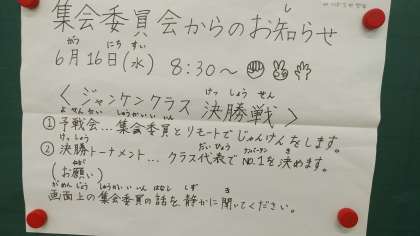 集会委員会からのお知らせ
6月16日(水) 8:30〜
〈ジャンケンクラス 決勝戦〉
①予戦会…集会委員とリモートでじゃんけんをします。
②決勝トーナメント…クラス代表でNO.1を決めます。
(お願い)
画面上の集会委員の話を静かに聞いてください。